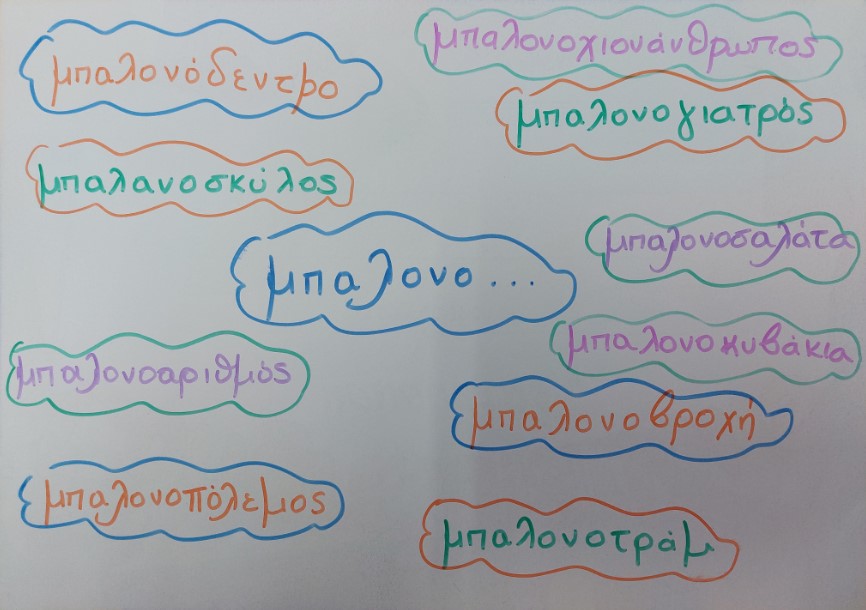 μπαλονόδεντρο
μπαλονοχιονάνθρωπος
μπαλονογιατρός
μπαλανοσκύλος
μπαλονοσαλάτα
μπαλονο...
μπαλονοκυβάκια
μπαλονοαριθμός
μπαλονοβροχή
μπαλονοπόλεμος
μπαλονοτράμ